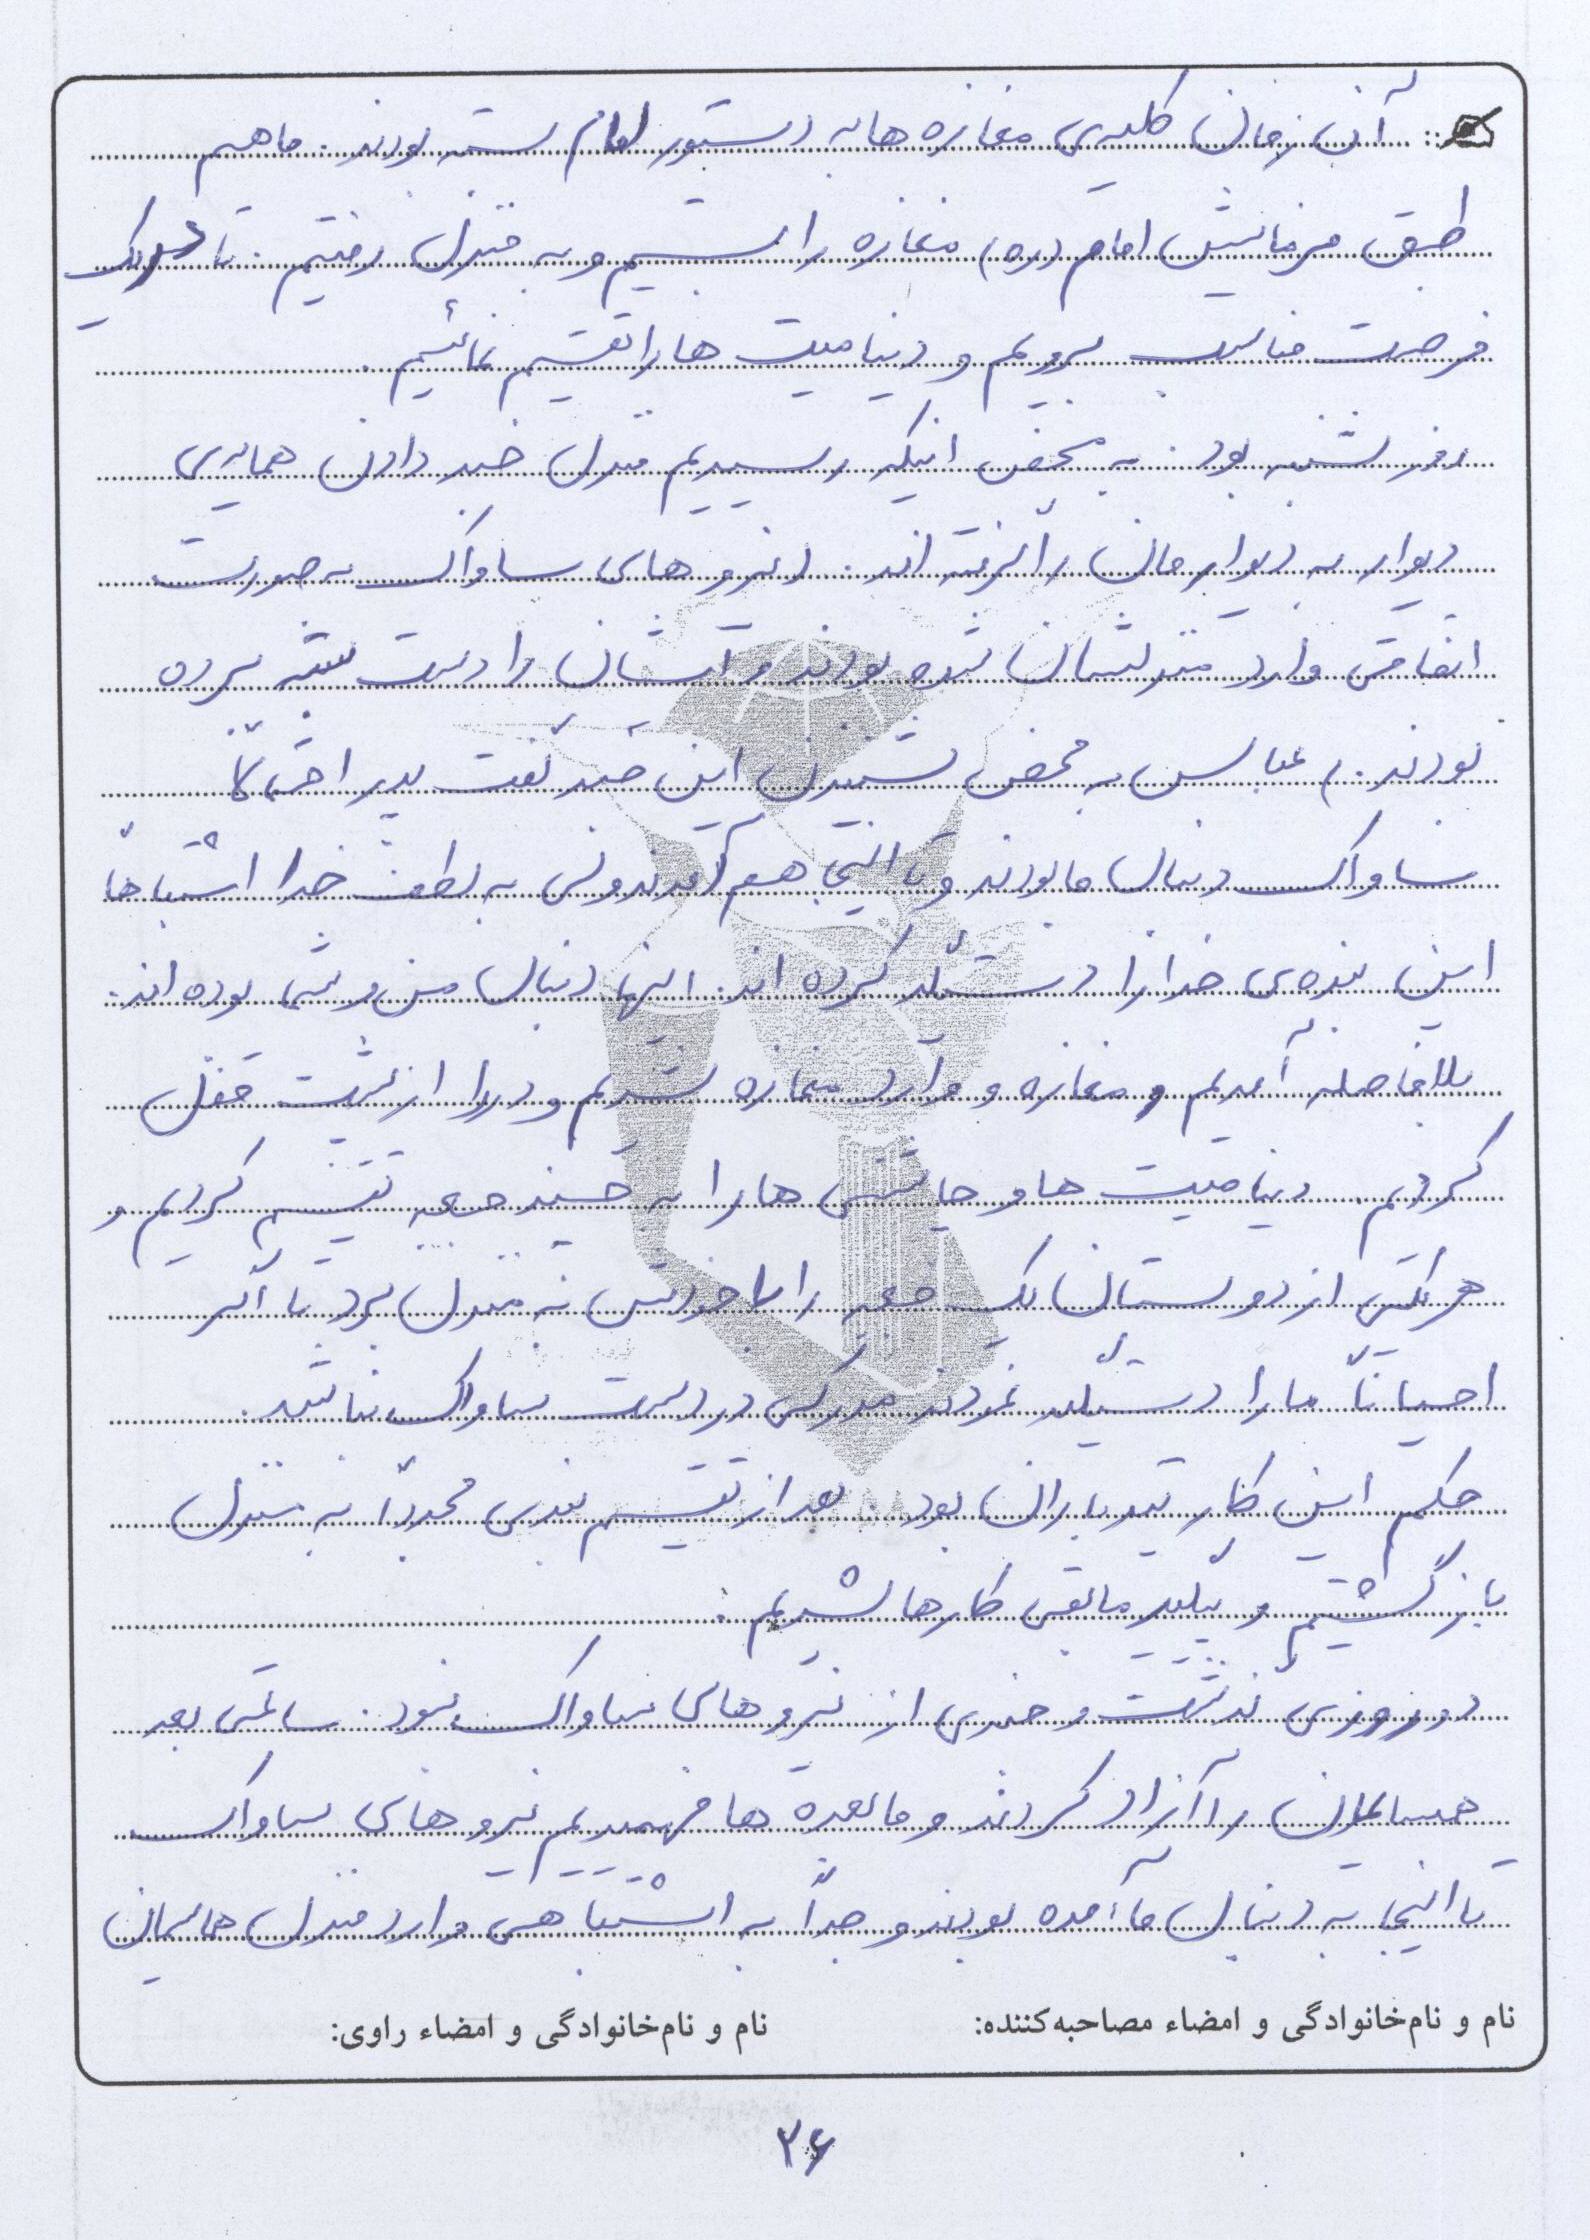 آن زمان کلیه‌ی مغازه ها به دستور امام بسته بودند. ما هم
طبق فرمایش امام (ره) مغازه را بستیم و به منزل رفتیم. تا در یک
فرصت مناسب برویم و دینامیت ها را تقسیم نمائیم.
روز شنبه بود. به محض اینکه رسیدیم منزل خبر دادن همسایه‌ی
دیوار به دیوارمان را گرفته اند. (نیروهای ساواک به صورت
اتفاقی وارد منزلشان شده بودند و آنشان را دست بسته برده
بودند.) عباس به محض شنیدن این خبر گفت پدر احتمالاً
ساواک دنبال ما بودند و تا اینجا هم آمدند ولی به لطف خدا اشتباهاً
این بنده‌ی خدا را دستگیر کرده اند. اینها دنبال من و شما بوده اند.
بلافاصله آمدیم مغازه و وارد مغازه شدیم و در را از پشت قفل
کردیم. دینامیت ها و چاشنی ها را به چند جعبه تقسیم کردیم و
هر یکی از دوستان یک جعبه را با خودش به منزل برد تا اگر
احیاناً ما را دستگیر نمودند مدرکی در دست ساواک نباشد.
حکم این کار تیرباران بود. بعد از تقسیم بندی مجدداً به منزل
بازگشتیم و پیگیر مابقی کارها شدیم.
دو روزی گذشت و خبری از نیروهای ساواک نبود. ساعتی بعد
همسایمان را آزاد کردند و ما بعده ها فهمیدیم نیروهای ساواک
تا اینجا به دنبال ما آمده بودند و جداً به اشتباهی وارد منزل همسایمان
نام و نام‌خانوادگی و امضاء مصاحبه‌کننده: نام و نام‌خانوادگی و امضاء راوی:
۲۶